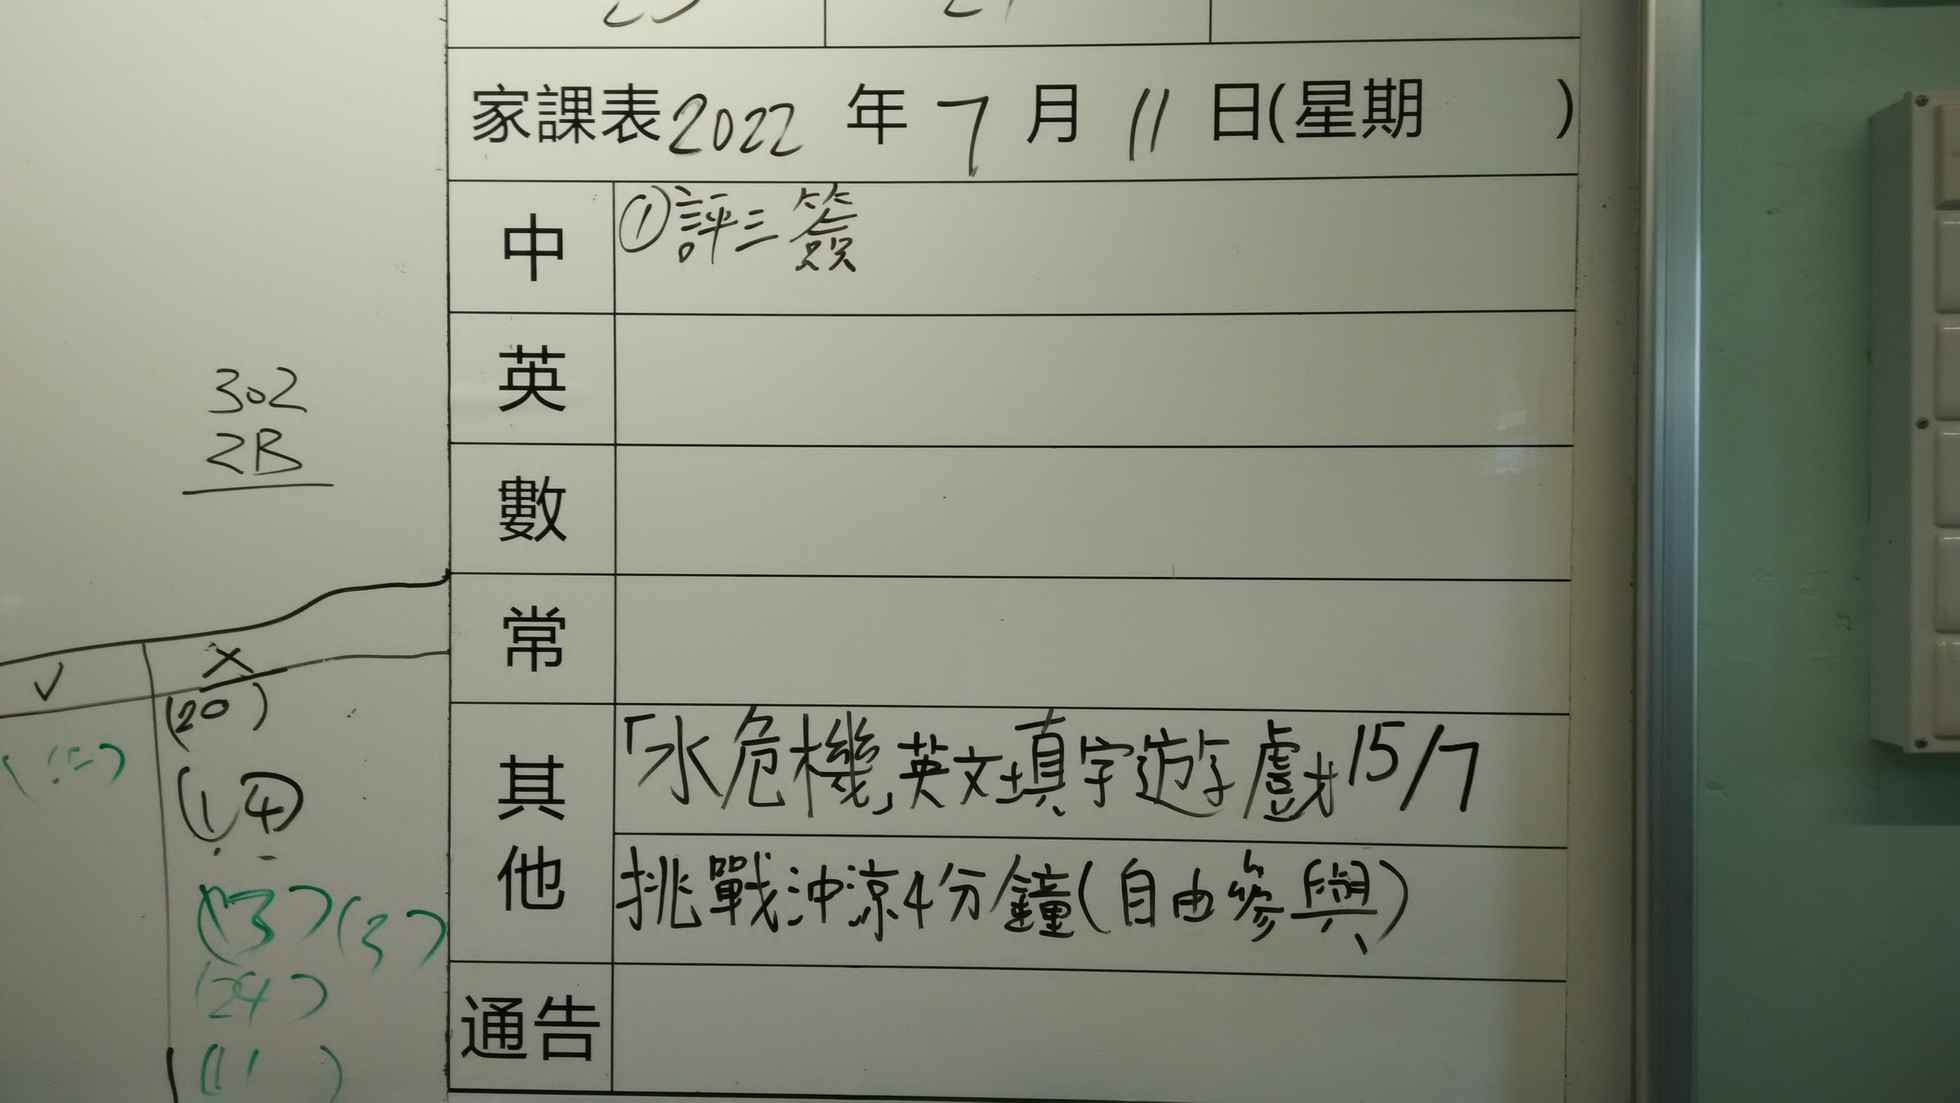 302
2B
✓
×
(20)
(14)
(13) (3)
(24)
(11 )
家課表2022 年 7 月 11 日(星期 )
中 ①評三簽
英
數
常
其他 「水危機」英文填字遊戲15/7
挑戰沖涼4分鐘(自由參與)
通告